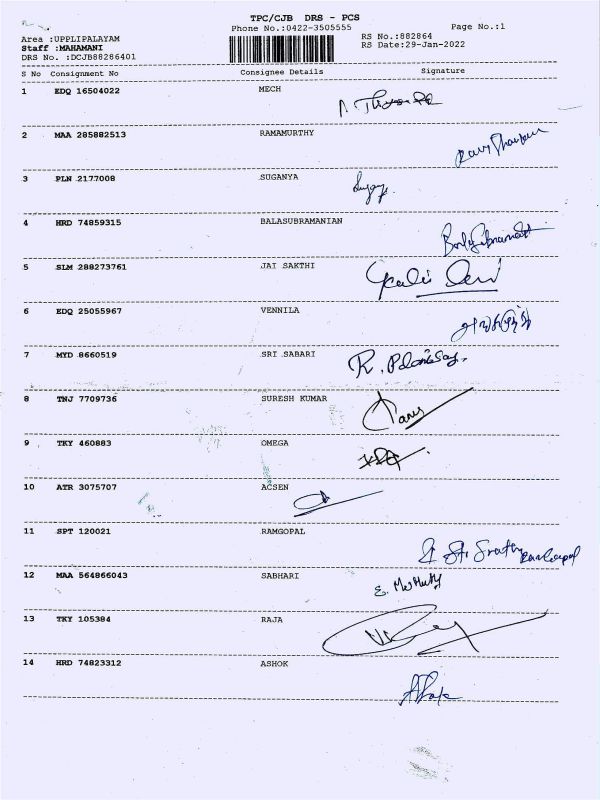 TPC/CJB DRS - PCS
Phone No.:0422-3505555 Page No.:1
Area :UPPLIPALAYAM RS No.:882864
Staff :MAHAMANI RS Date:29-Jan-2022
DRS No. :DCJB88286401
S No Consignment No Consignee Details Signature
1 EDQ 16504022 MECH
2 MAA 285882513 RAMAMURTHY
3 PLN 2177008 SUGANYA
4 HRD 74859315 BALASUBRAMANIAN
5 SLM 288273761 JAI SAKTHI
6 EDQ 25055967 VENNILA
7 MYD 8660519 SRI SABARI
8 TNJ 7709736 SURESH KUMAR
9 TKY 460883 OMEGA
10 ATR 3075707 ACSEN
11 SPT 120021 RAMGOPAL
12 MAA 564866043 SABHARI
13 TKY 105384 RAJA
14 HRD 74823312 ASHOK